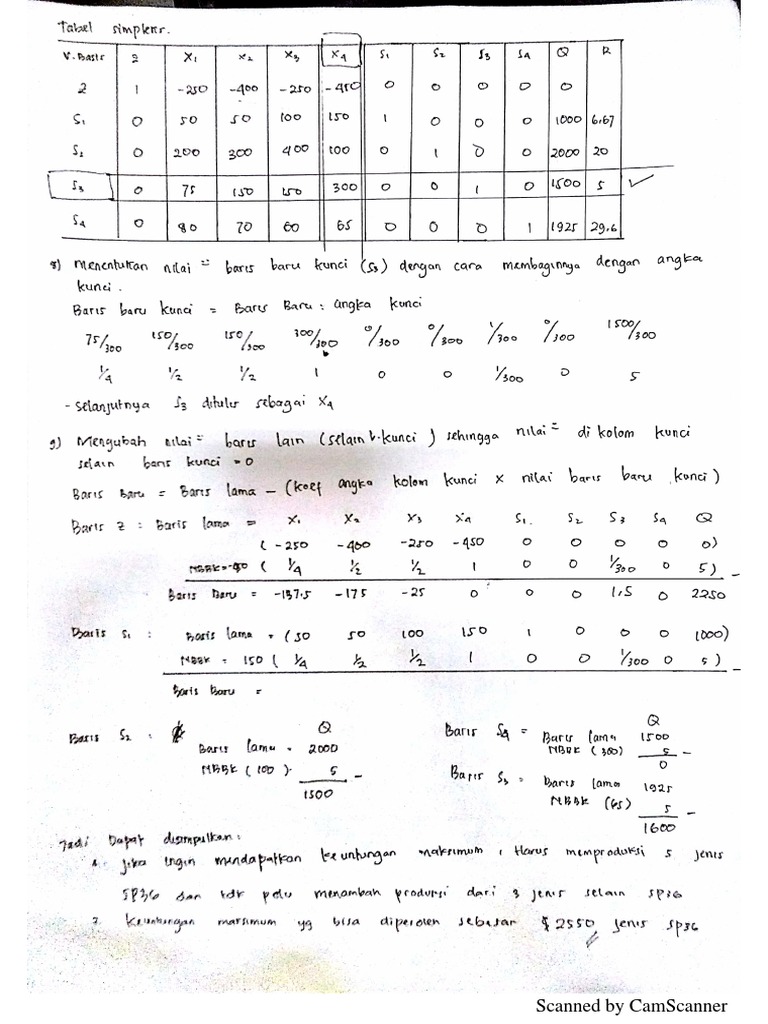 Tabel simpleks.
V. Basis Z X₁ X₂ X₃ X₄ S₁ S₂ S₃ S₄ Q R
Z 1 -250 -400 -250 -450 0 0 0 0 0
S₁ 0 50 50 100 150 1 0 0 0 1000 6.67
S₂ 0 200 300 400 100 0 1 0 0 2000 20
S₃ 0 75 150 150 300 0 0 1 0 1500 5 ✓
S₄ 0 80 70 60 65 0 0 0 1 1925 29.6
8) Menentukan nilai = baris baru kunci (S₃) dengan cara membaginya dengan angka
kunci.
Baris baru kunci = Baris Baru : angka kunci
75/300 150/300 150/300 300/300 0/300 0/300 1/300 0/300 1500/300
1/4 1/2 1/2 1 0 0 1/300 0 5
- Selanjutnya S₃ ditulis sebagai X₄
9) Mengubah nilai = baris lain (selain b. kunci) sehingga nilai = di kolom kunci
selain baris kunci = 0
Baris Baru = Baris lama - (koef angka kolom kunci x nilai baris baru kunci)
Baris Z : Baris lama = X₁ X₂ X₃ X₄ S₁ S₂ S₃ S₄ Q
(-250 -400 -250 -450 0 0 0 0 0)
(1/4 1/2 1/2 1 0 0 1/300 0 5) -
Baris Baru = -137.5 -175 -25 0 0 0 1,5 0 2250
Baris S₁ : Baris lama = (50 50 100 150 1 0 0 0 1000)
NBBK = 150 (1/4 1/2 1/2 1 0 0 1/300 0 5) -
Baris Baru =
Baris S₂ : Q
Baris lama = 2000
NBBK (100) . 5 -
1500
Baris S₄ = Q
Baris lama 1500
NBBK (300) 5 -
0
Baris S₃ = Baris lama 1925
NBBK (65) 5 -
1600
Jadi Dapat disimpulkan :
Jika ingin mendapatkan keuntungan maksimum, Harus memproduksi 5 jenis
SP36 dan tdk perlu menambah produksi dari 3 jenis selain SP36
2. Keuntungan maksimum yg bisa diperoleh sebesar $ 2550 jenis SP36
Scanned by CamScanner